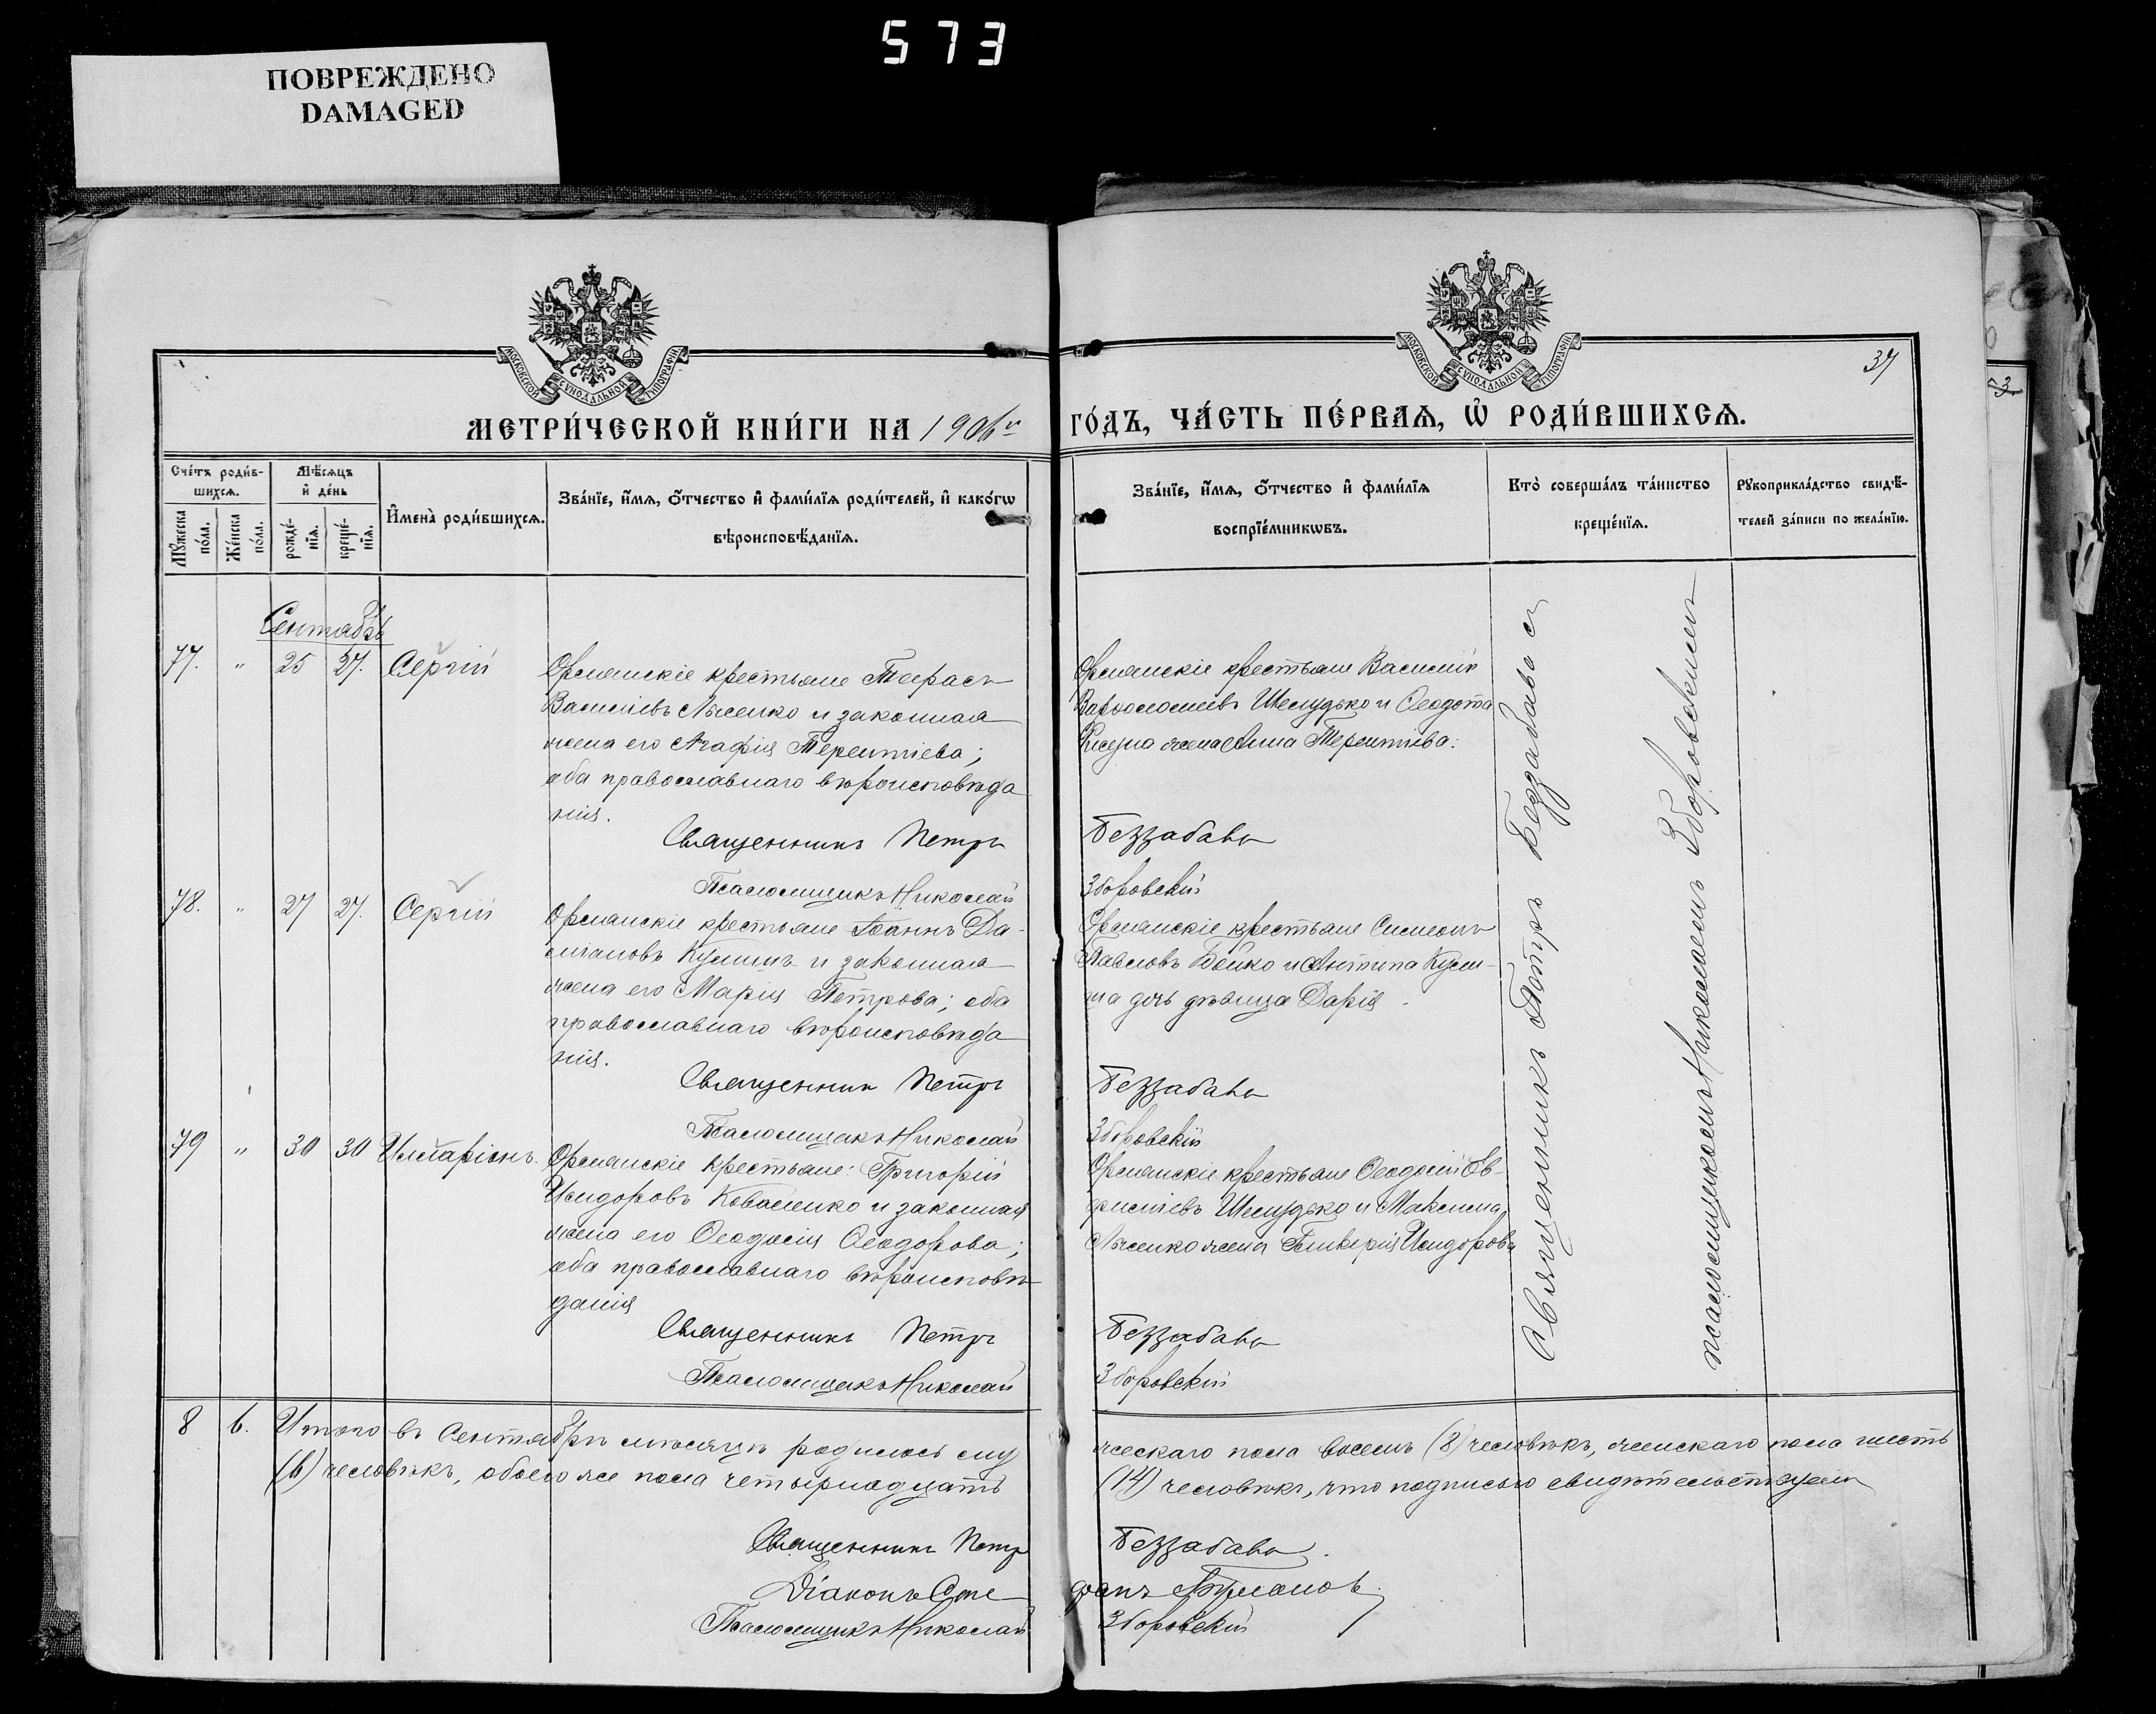 573
ПОВРЕЖДЕНО
DAMAGED
МОСКОВСКОЙ СУНОДАЛЬНОЙ ТИПОГРАФІИ
МОСКОВСКОЙ СУНОДАЛЬНОЙ ТИПОГРАФІИ
37
МЕТРИ́ЧЕСКОЙ КНИ́ГИ НА 1906й ГО́ДЪ, ЧА́СТЬ ПЕ́РВАЯ, Ѡ҆ РОДИ́ВШИХСѦ.
Сче́тъ роди́в-
шихсѧ.
Мꙋ́жеска по́ла.
Же́нска по́ла.
Мѣ́сѧцъ
и҆ де́нь
рожде́-
нїѧ.
креще́-
нїѧ.
И҆мена̀ роди́вшихсѧ.
Зва́нїе, и҆́мѧ, ѻ҆́тчество и҆ фами́лїѧ роди́телей, и҆ како́гѡ
вѣроисповѣ́данїѧ.
Зва́нїе, и҆́мѧ, ѻ҆́тчество и҆ фами́лїѧ
воспрїе́мникѡвъ.
Кто̀ соверша́лъ та́инство
креще́нїѧ.
Рꙋкоприкла́дство свидѣ́-
телей за́писи по жела́нїю.
Сентябрь
77. " 25 27. Сергій
Орлянскіе крестьяне Тарасъ
Василіевъ Лысенко и законная
жена его Агафія Терентіева;
оба православнаго вѣроисповѣда
нія.
Священникъ Петръ
Псаломщикъ Николай
Орлянскіе крестьяне Василій
Варфоломеевъ Шелудько и Ѳеодота
жена Анна Терентіева.
Беззабава
Зборовскій
78. " 27 27. Сергій
Орлянскіе крестьяне Іоаннъ Да-
міановъ и законная
жена его Марія Петрова; оба
православнаго вѣроисповѣда
нія.
Священник Петръ
Псаломщикъ Николай
Орлянскіе крестьяне Симеонъ
Павловъ Бойко и Антипа
дочь дѣвица Дарія.
Беззабава
Зборовскій
79 " 30 30 Илларіонъ.
Орлянскіе крестьяне: Григорій
Исидоровъ Коваленко и законная
жена его Ѳеодосія Ѳеодорова;
оба православнаго вѣроисповѣ-
данія
Священникъ Петръ
Псаломщикъ Николай
Орлянскіе крестьяне Ѳеодосій Ев-
Шелудько и Максима
Лысенко жена Гликерія Исидорова
Беззабава
Зборовскій
Священникъ Петръ Беззабава съ
псаломщикомъ Николаемъ Зборовскимъ
8 6. Итого въ Сентябрѣ мѣсяцѣ родилось муж
ческаго пола восемь (8) человѣкъ, женскаго пола шесть
(6) человѣкъ, обоего же пола четырнадцать
(14) человѣкъ, что подписью свидѣтельствуемъ
Священникъ Петр
Беззабава.
Діаконъ Сте
фанъ
Псаломщикъ Николай
Зборовскій